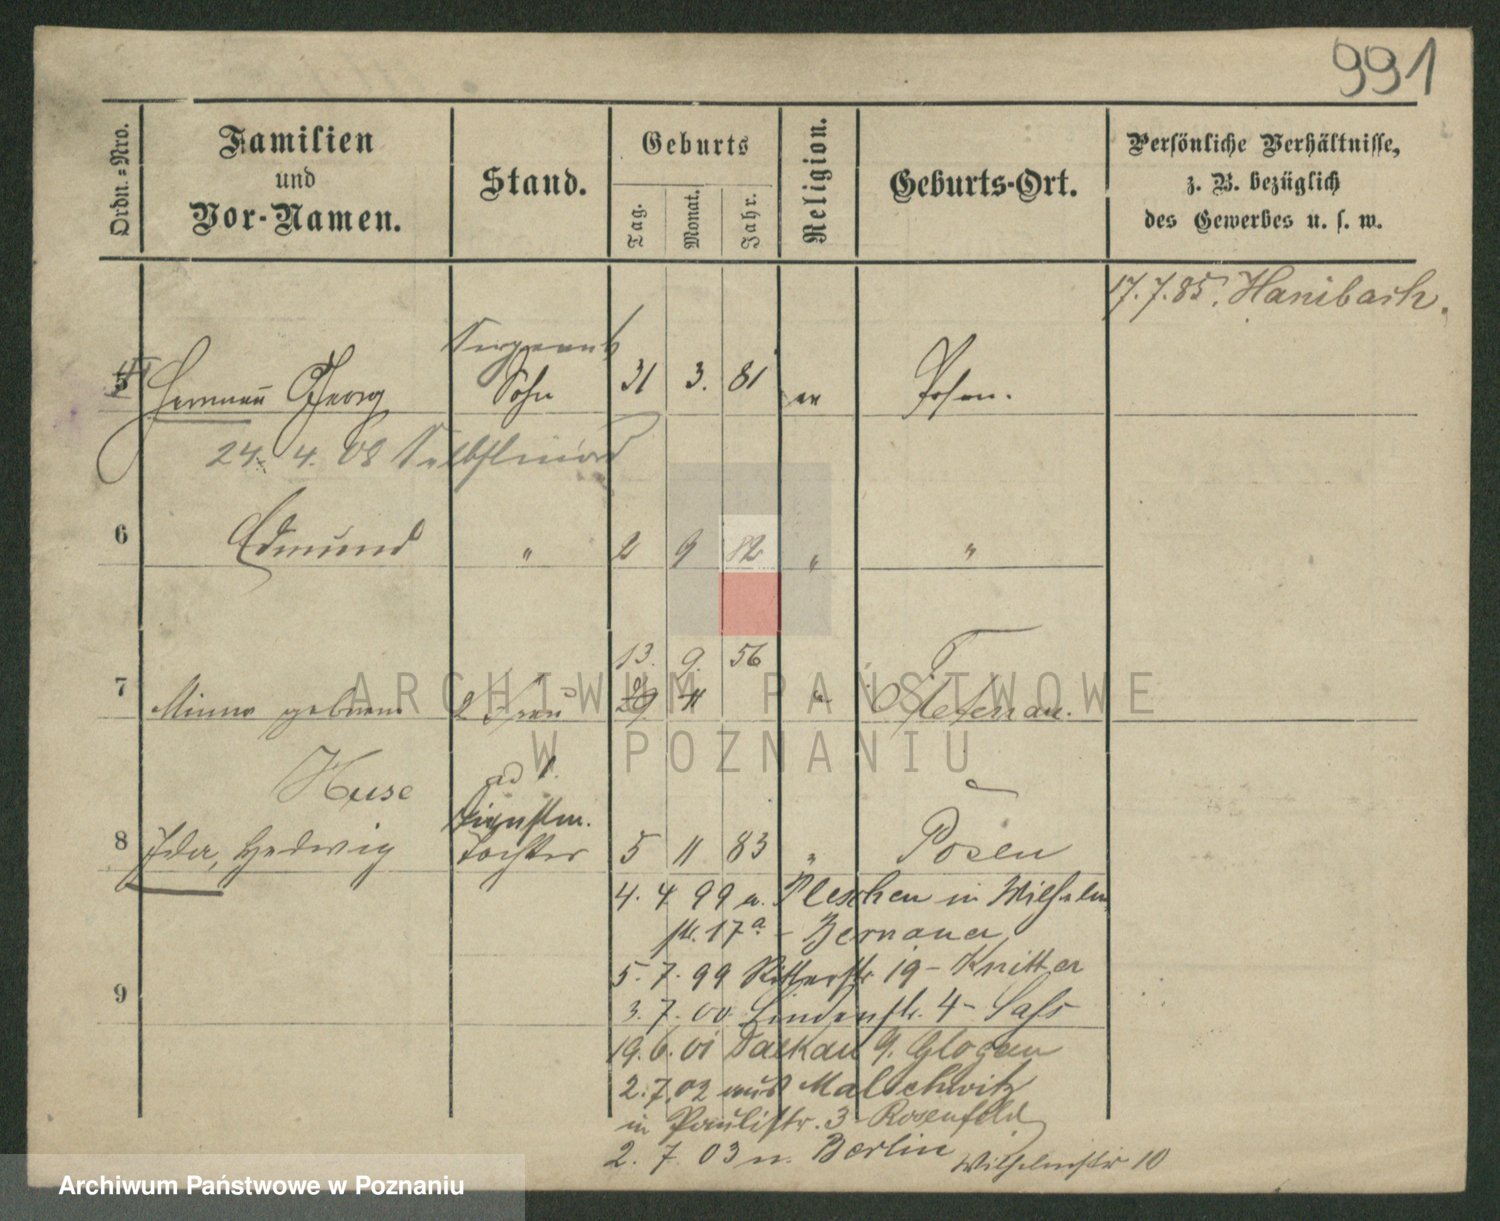 991
Ordn.-Nro.
Familien
und
Vor-Namen.
Stand.
Geburts
Tag.
Monat.
Jahr.
Religion.
Geburts-Ort.
Persönliche Verhältnisse,
z. B. bezüglich
des Gewerbes u. s. w.
17. 7. 85. Hanibach.
Sergeants
5 Herrmann Georg Sohn 31 3. 81 ev Posen.
24. 4. 08 Selbstmord
6 Edmund " 2 9 82 " "
13. 9. 56
7 Minna geborene 2 Frau 29 11 "
Huse ad 1.
Dienstm.
8 Ida, Hedwig Tochter 5 11 83 " Posen
4. 4 99 n. Pleschen in Wilhelm
str. 17a - Bernauer
5. 7. 99 Ritterstr 19 - Knitter
9
3. 7. 00 Lindenstr. 4 - Sass
19. 6. 01 Dalkau Glogau
2. 7. 02 aus Malschwitz
in Paulistr. 3 - Rosenfeld
2. 7 03 n. Berlin Wilhelmstr 10
ARCHIWUM PAŃSTWOWE
W POZNANIU
Archiwum Państwowe w Poznaniu